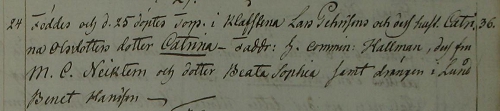 24 Föddes och d. 25 döptes Torp. i Klaffkna Lars Pehrssons och dess hust. Catri, 36.
na Olsdotters dotter Catrina – Faddr: H. Commin: Hallman, dess fru
M. C. Neiktern och dotter Beata Sophia samt drängen i Lund
Benct Hansson –